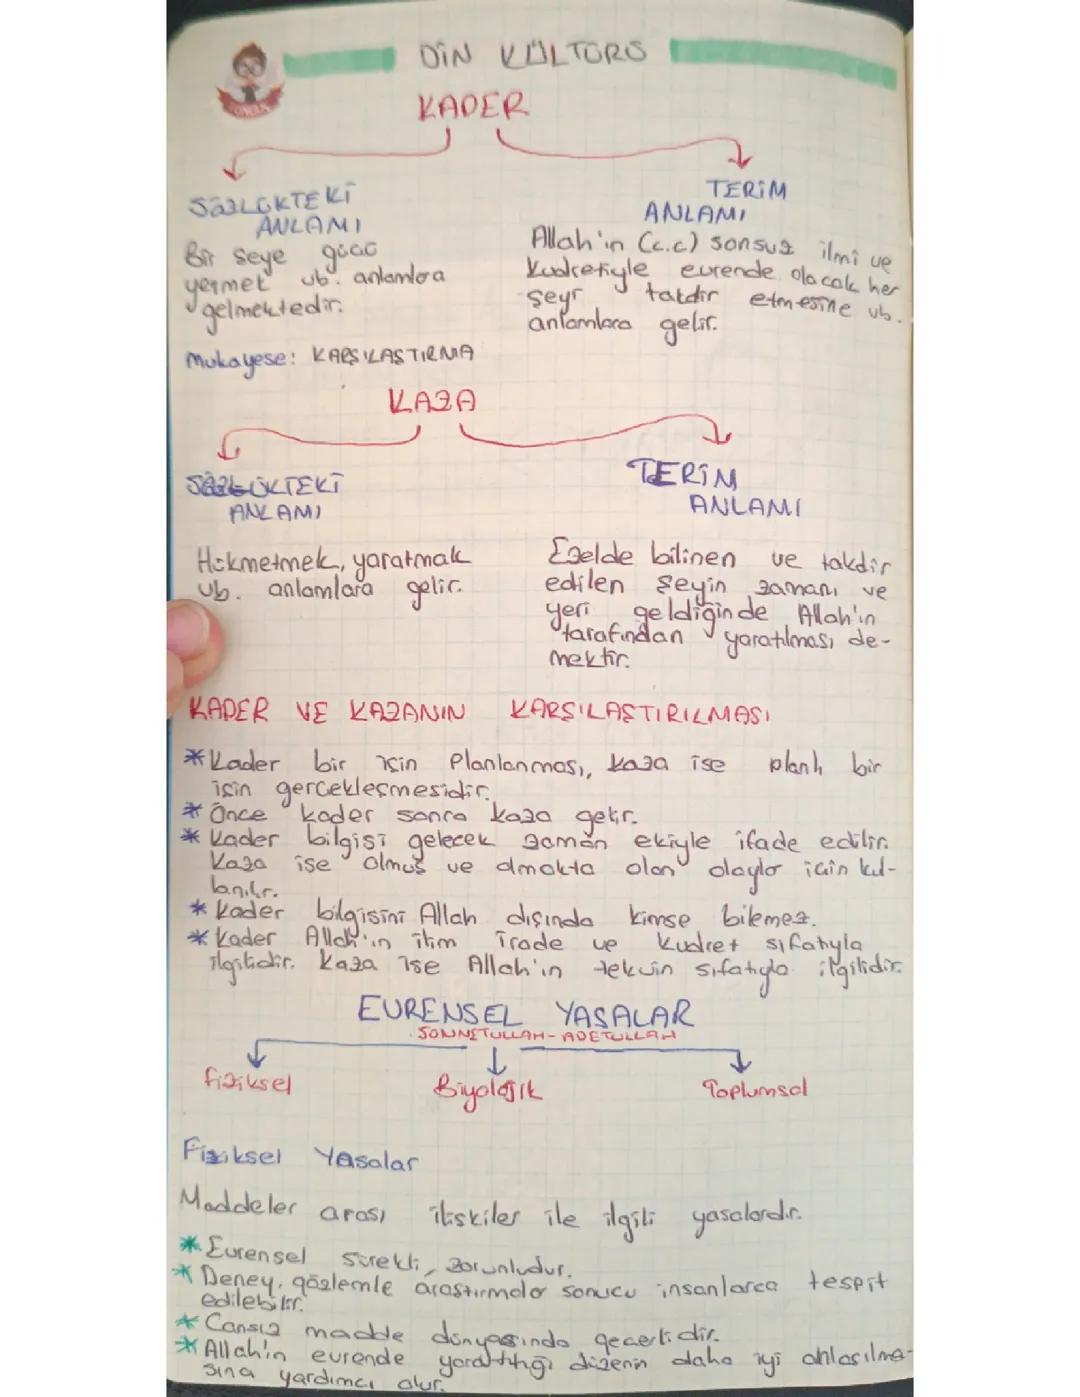 DİN KÜLTÜRÜ
KADER
SÖZLÜKTEKİ
ANLAMI
Bir şeye gücü
yetmek vb. anlamlara
gelmektedir.
TERİM
ANLAMI
Allah'ın (c.c) sonsuz ilmi ve
kudretiyle evrende olacak her
şeyi takdir etmesine vb.
anlamlara gelir.
Mukayese: KARŞILAŞTIRMA
KAZA
SÖZLÜKTEKİ
ANLAMI
Hükmetmek, yaratmak
vb. anlamlara gelir.
TERİM
ANLAMI
Ezelde bilinen ve takdir
edilen şeyin zamanı ve
yeri geldiğinde Allah'ın
tarafından yaratılması de-
mektir.
KADER VE KAZANIN KARŞILAŞTIRILMASI
* Kader bir işin Planlanması, kaza ise planlı bir
işin gerçekleşmesidir.
* Önce kader sonra kaza gelir.
* Kader bilgisi gelecek zaman ekiyle ifade edilir.
Kaza ise olmuş ve olmakta olan olaylar için kul-
lanılır.
* Kader bilgisini Allah dışında kimse bilemez.
* Kader Allah'ın ilim irade ve kudret sıfatıyla
ilgilidir. Kaza ise Allah'ın tekvin sıfatıyla ilgilidir.
EVRENSEL YASALAR
SÜNNETULLAH-ADETULLAH
fiziksel
Biyolojik
Toplumsal
Fiziksel Yasalar
Maddeler arası ilişkiler ile ilgili yasalardır.
* Evrensel sürekli, zorunludur.
* Deney, gözlemle araştırmalar sonucu insanlarca tespit
edilebilir.
* Cansız madde dünyasında geçerlidir.
* Allah'ın evrende yarattığı düzenin daha iyi anlaşılma-
sına yardımcı olur.